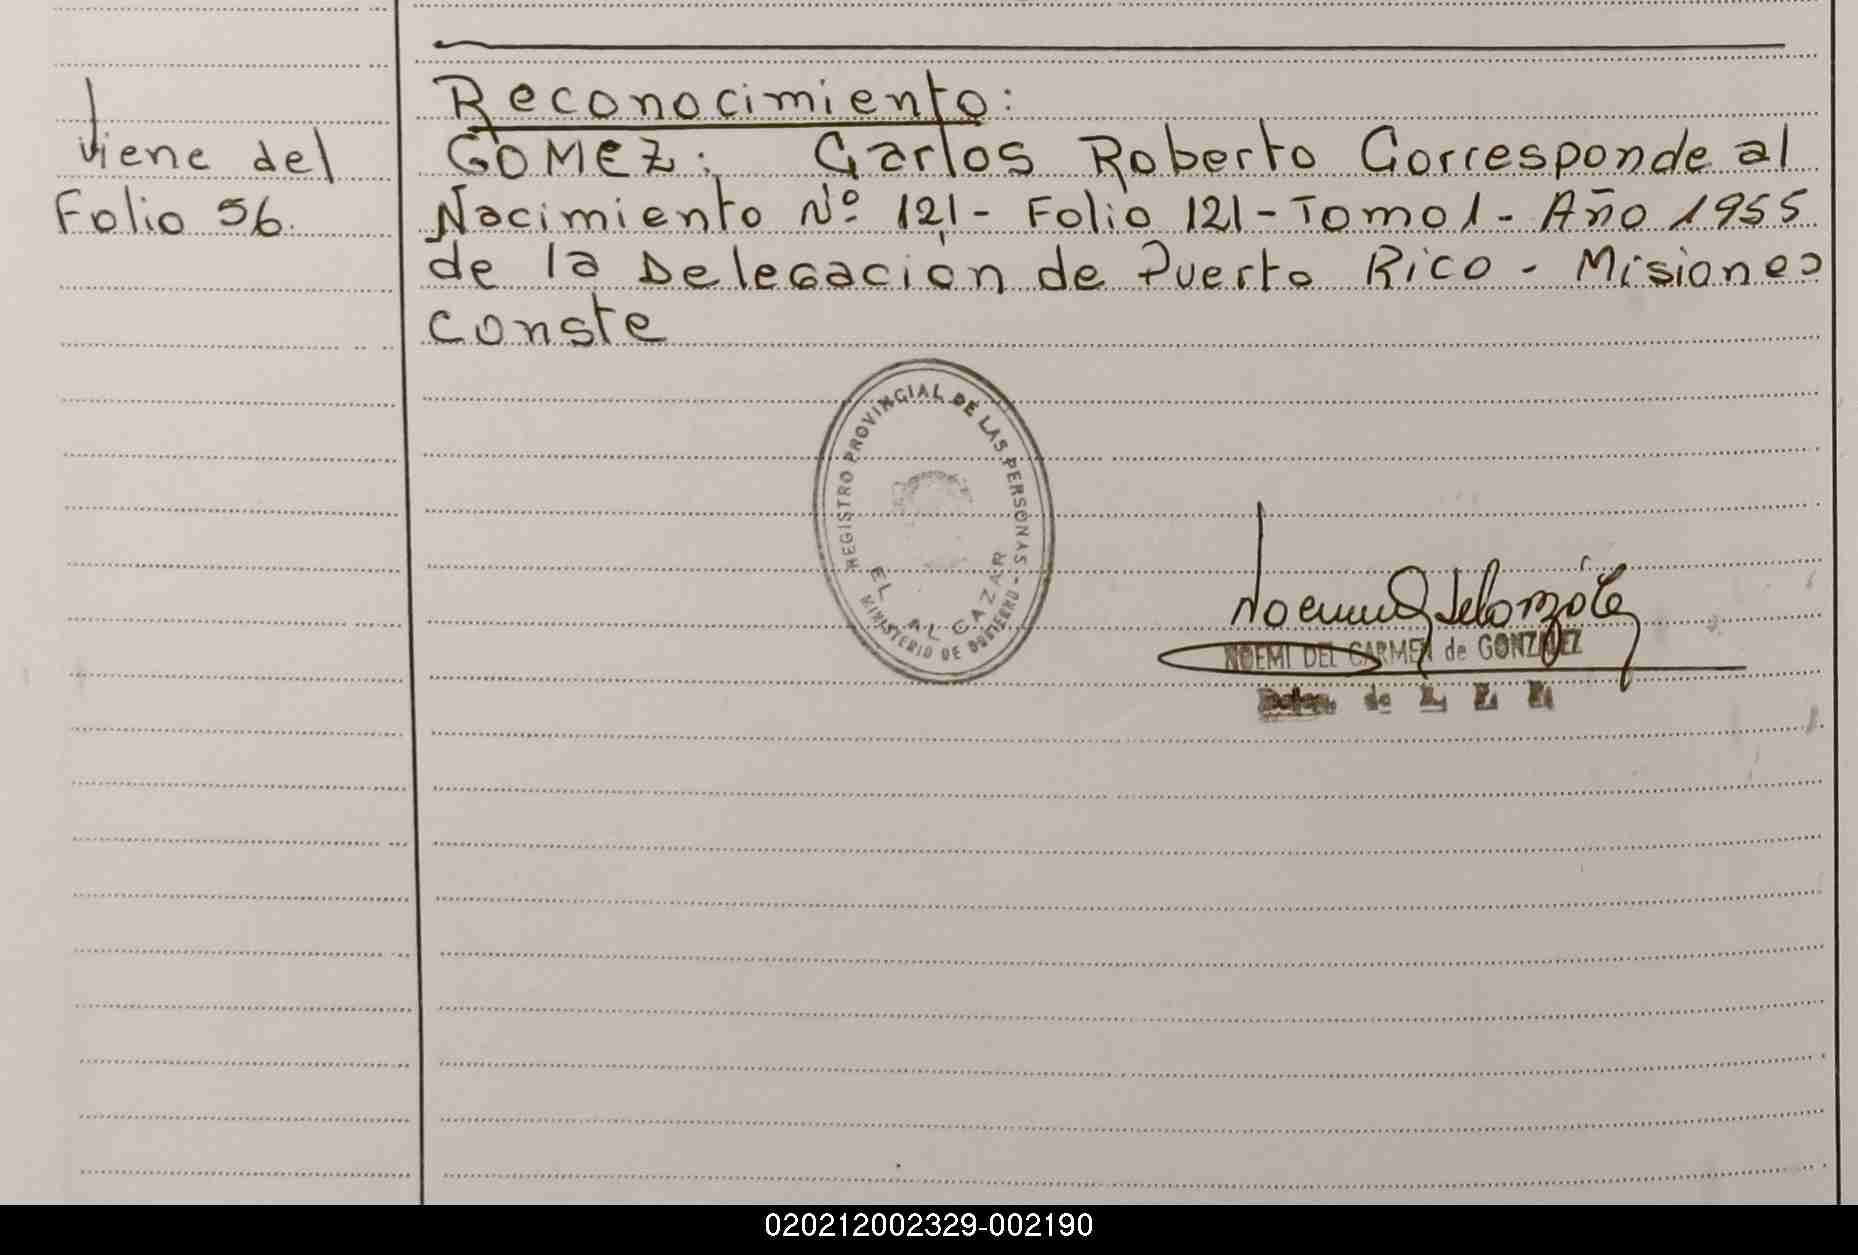 Viene del
Folio 56.
Reconocimiento:
GOMEZ: Carlos Roberto Corresponde al
Nacimiento Nº 121 - Folio 121 - Tomo 1 - Año 1955
de la Delegación de Puerto Rico - Misiones
conste
REGISTRO PROVINCIAL DE LAS PERSONAS -
MINISTERIO DE GOBIERNO
EL ALCAZAR
NOEMI DEL CARMEN de GONZALEZ
020212002329-002190